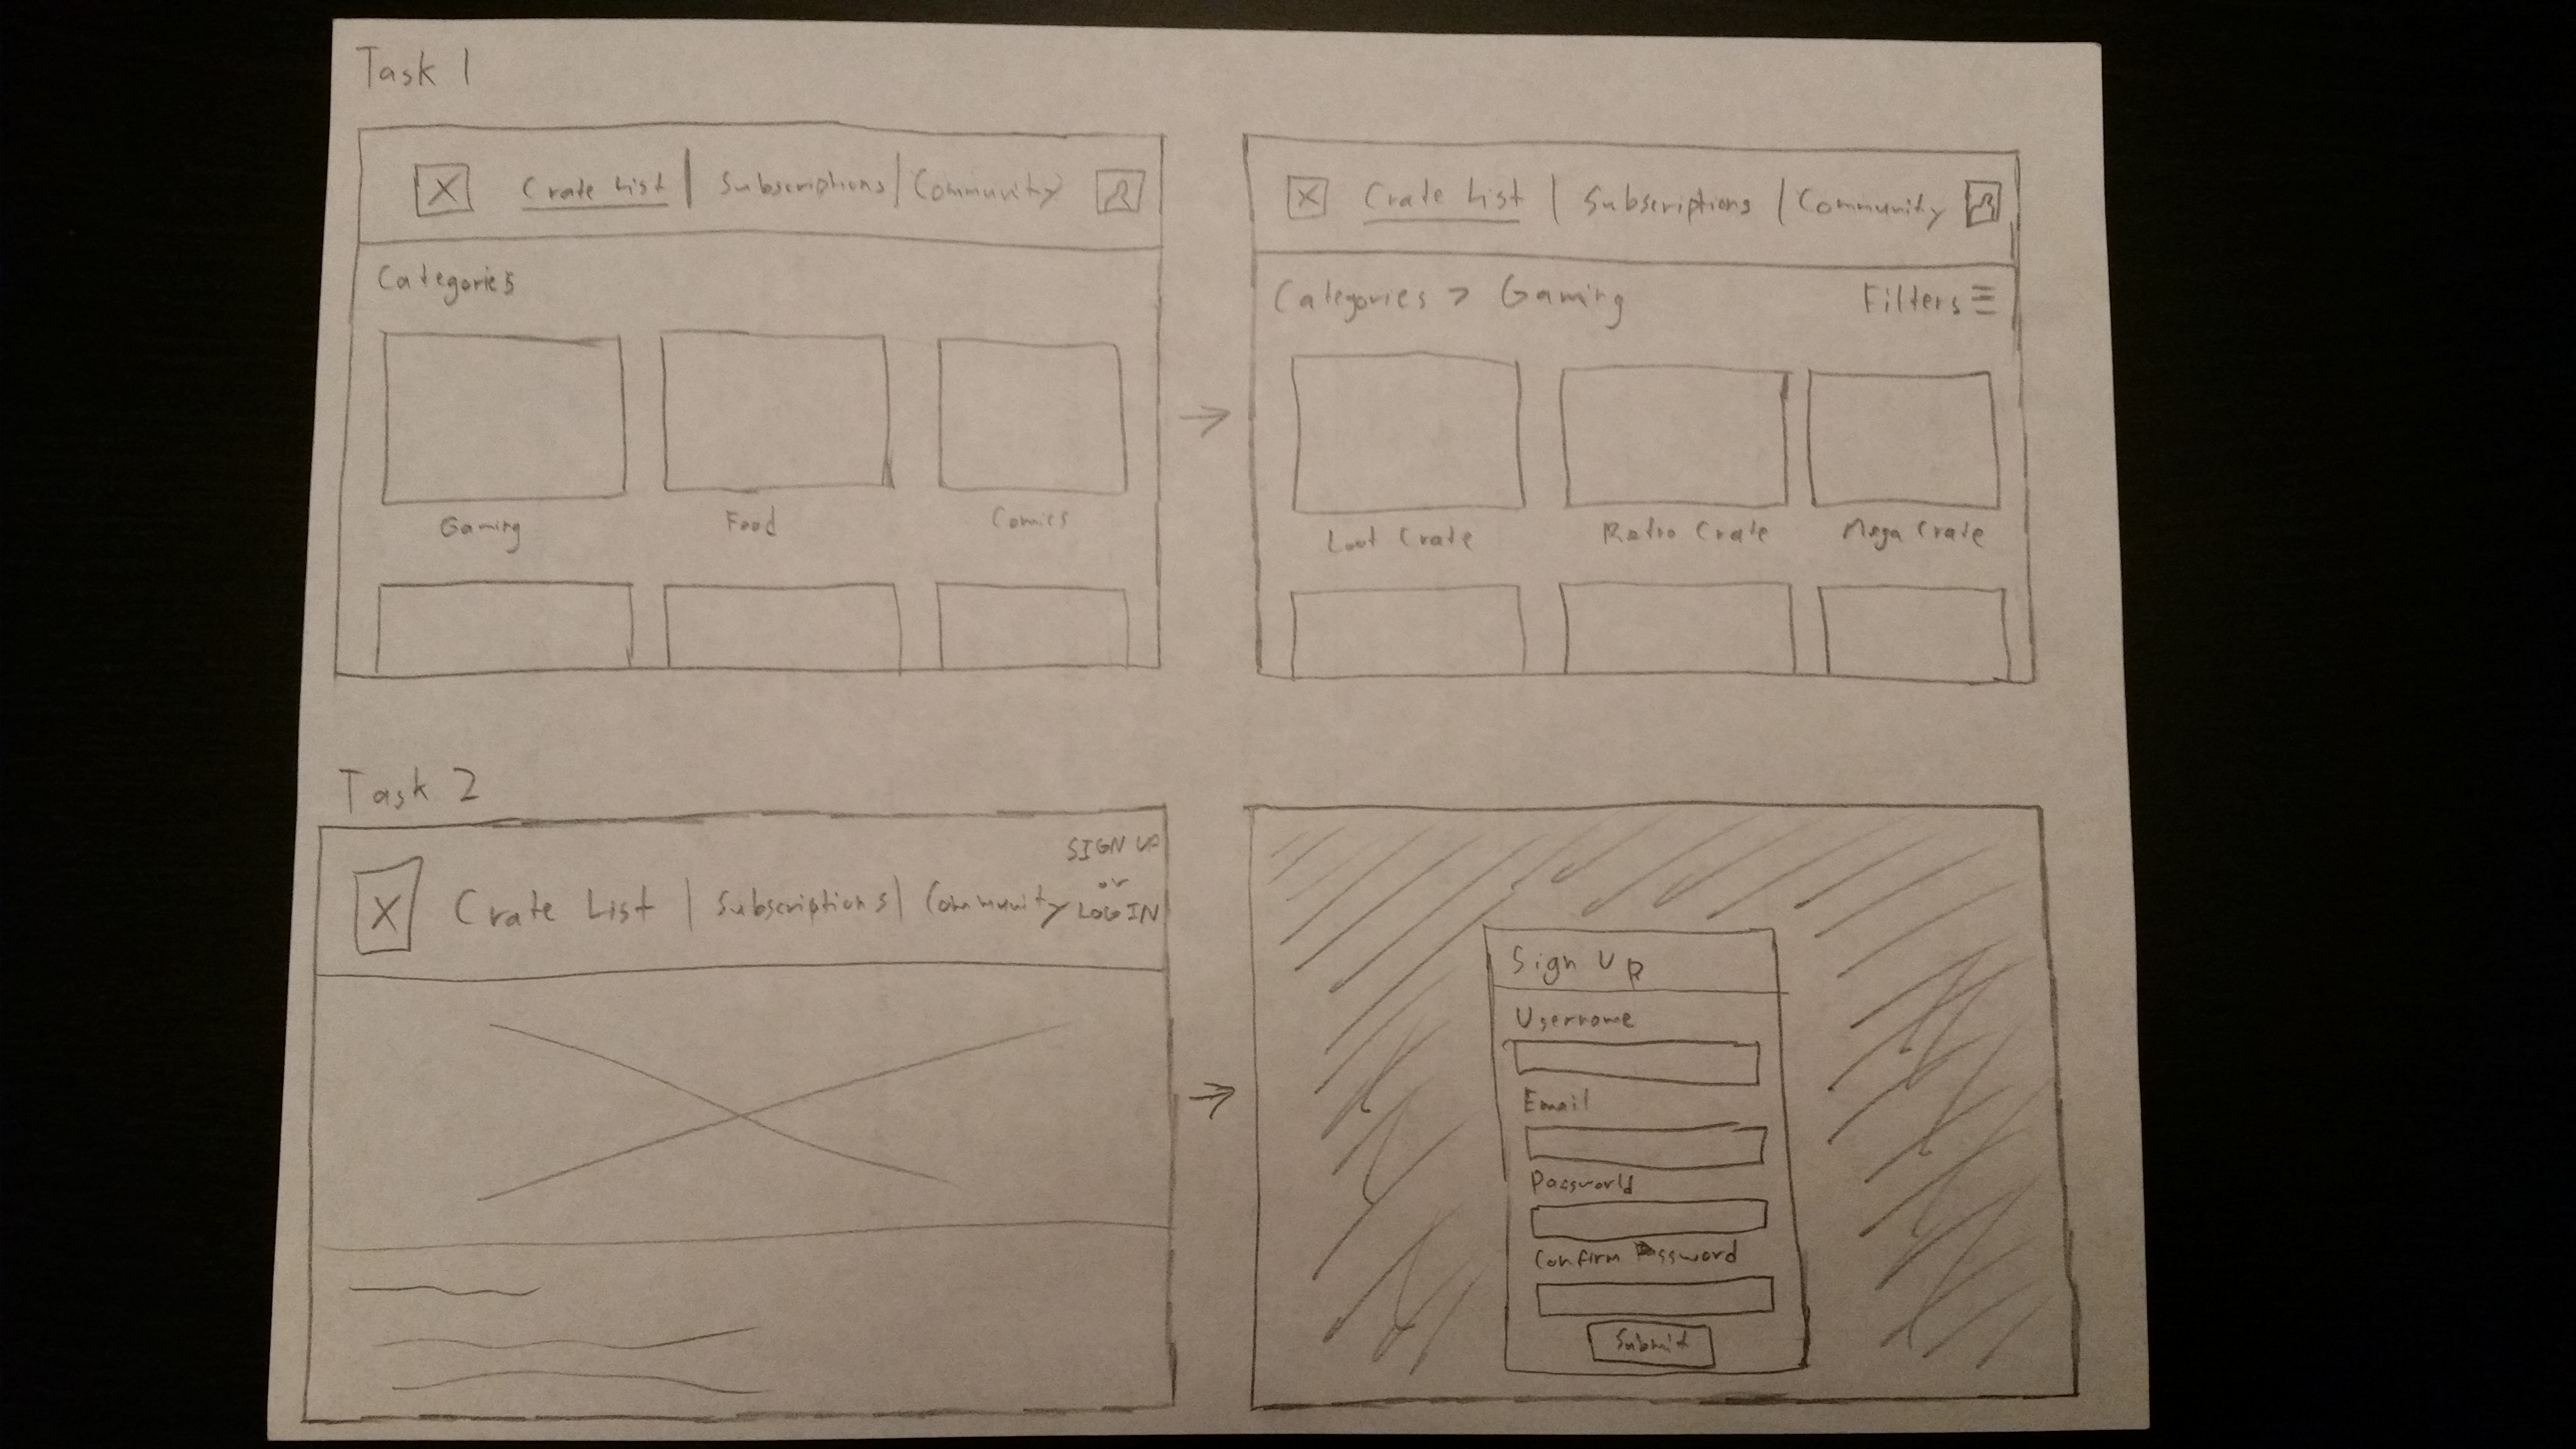 Task 1
X Crate List | Subscriptions | Community
Categories
Gaming Food Comics
X Crate List | Subscriptions | Community
Categories > Gaming Filters ☰
Loot Crate Retro Crate Mega Crate
Task 2
SIGN UP
or
LOG IN
X Crate List | Subscriptions | Community
Sign Up
Username
Email
Password
Confirm Password
Submit